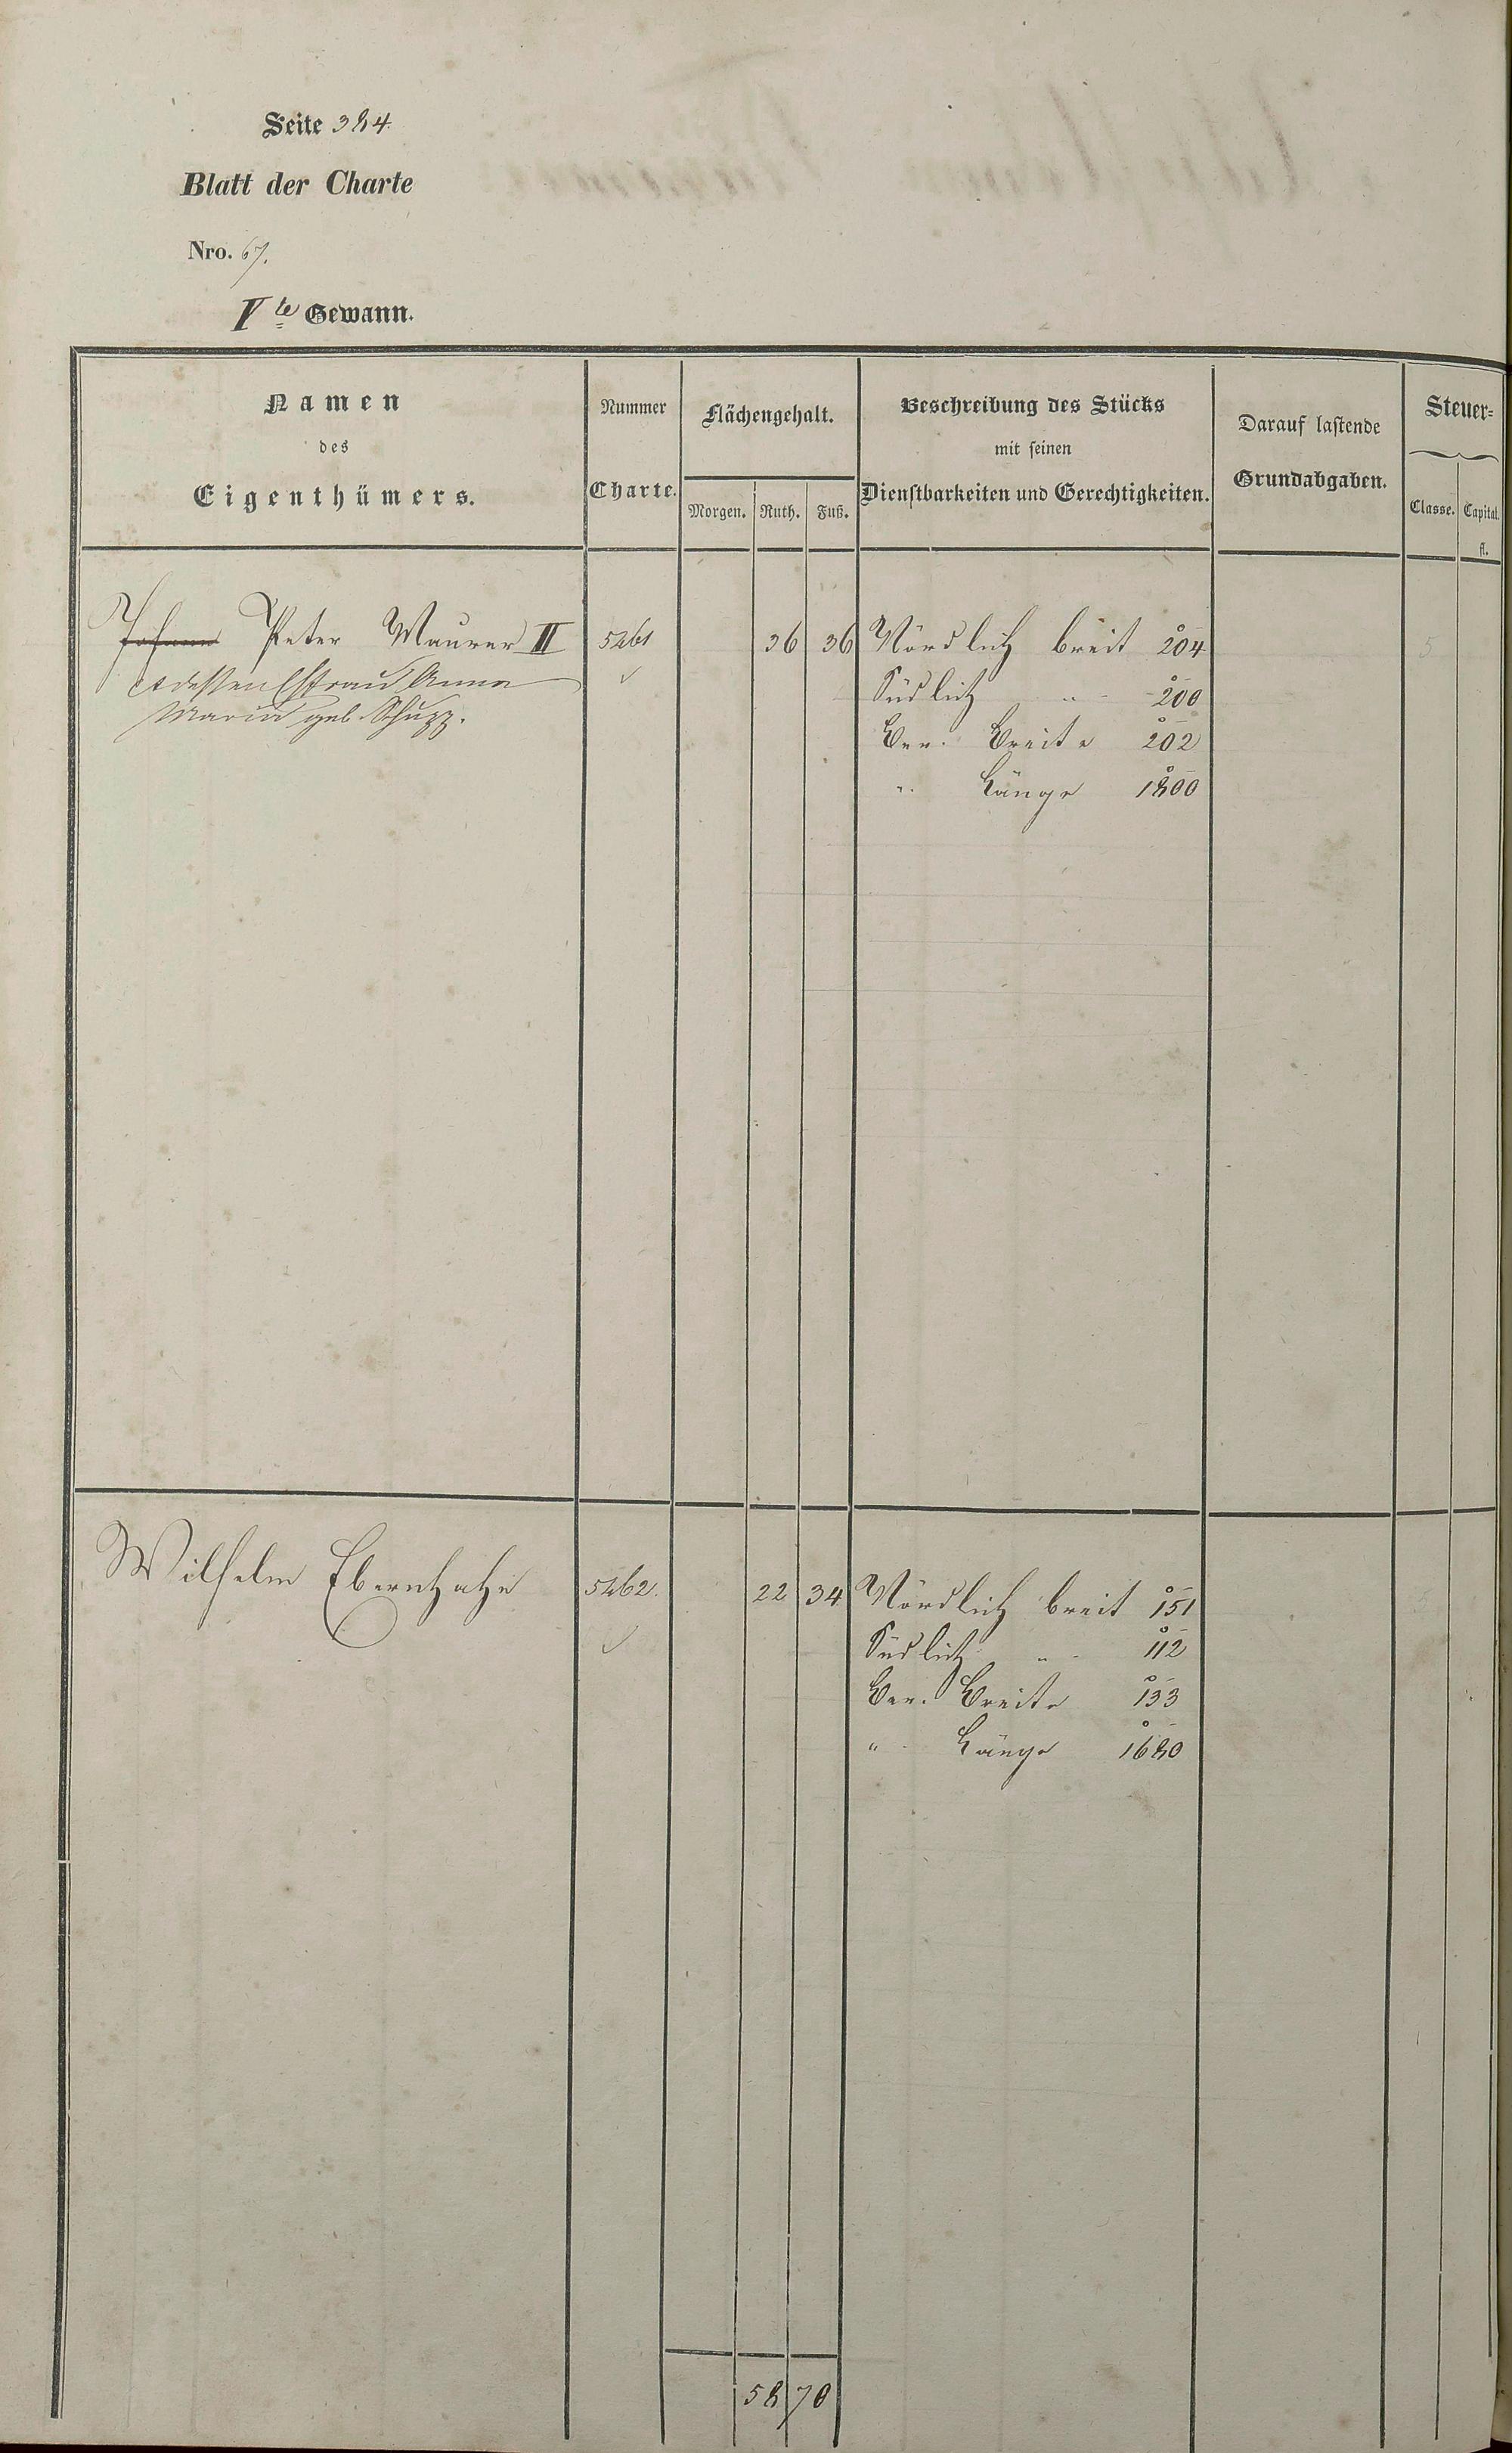 Seite 384.
Blatt der Charte
Nro. 67.
Vte Gewann.
Namen
des
Eigenthümers.
Nummer
Charte.
Flächengehalt.
Morgen. Ruth. Fuß.
Beschreibung des Stücks
mit seinen
Dienstbarkeiten und Gerechtigkeiten.
Darauf lastende
Grundabgaben.
Steuer-
Classe. Capital.
fl.
Johann Peter Maurer II 5461 36 36 Nördlich breit 204 5
et dessen Ehfrau Anna
Maria geb. Schupp.
Südlich " 200
Ber. Breite 202
" Länge 1800
Wilhelm Ebernhahn 5462. 22 34 Nördlich breit 151
Südlich " 112
Ber. Breite 133
" Länge 1680
58 70